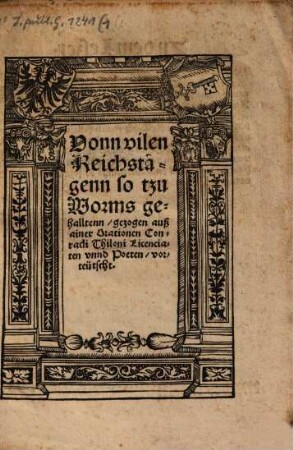 J. publ. G. 1241
Vonn vilen
Reichstä⸗
genn so tzu
Worms ge⸗
halltenn / gezogen auß
ainer Orationen Con⸗
radi Thiloni Licencia⸗
ten vnnd Poeten / vor⸗
teütscht.